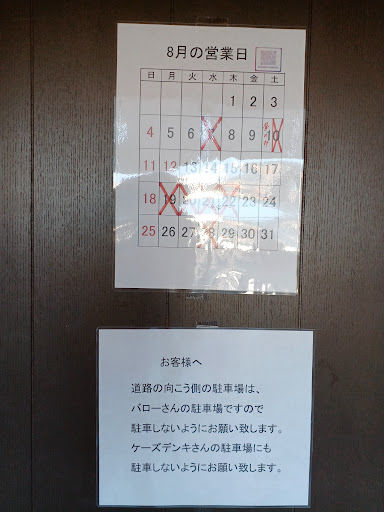 8月の営業日
日 月 火 水 木 金 土
1 2 3
4 5 6 7 8 9 10
11 12 13 14 15 16 17
18 19 20 21 22 23 24
25 26 27 28 29 30 31
お客様へ
道路の向こう側の駐車場は、
バローさんの駐車場ですので
駐車しないようにお願い致します。
ケーズデンキさんの駐車場にも
駐車しないようにお願い致します。